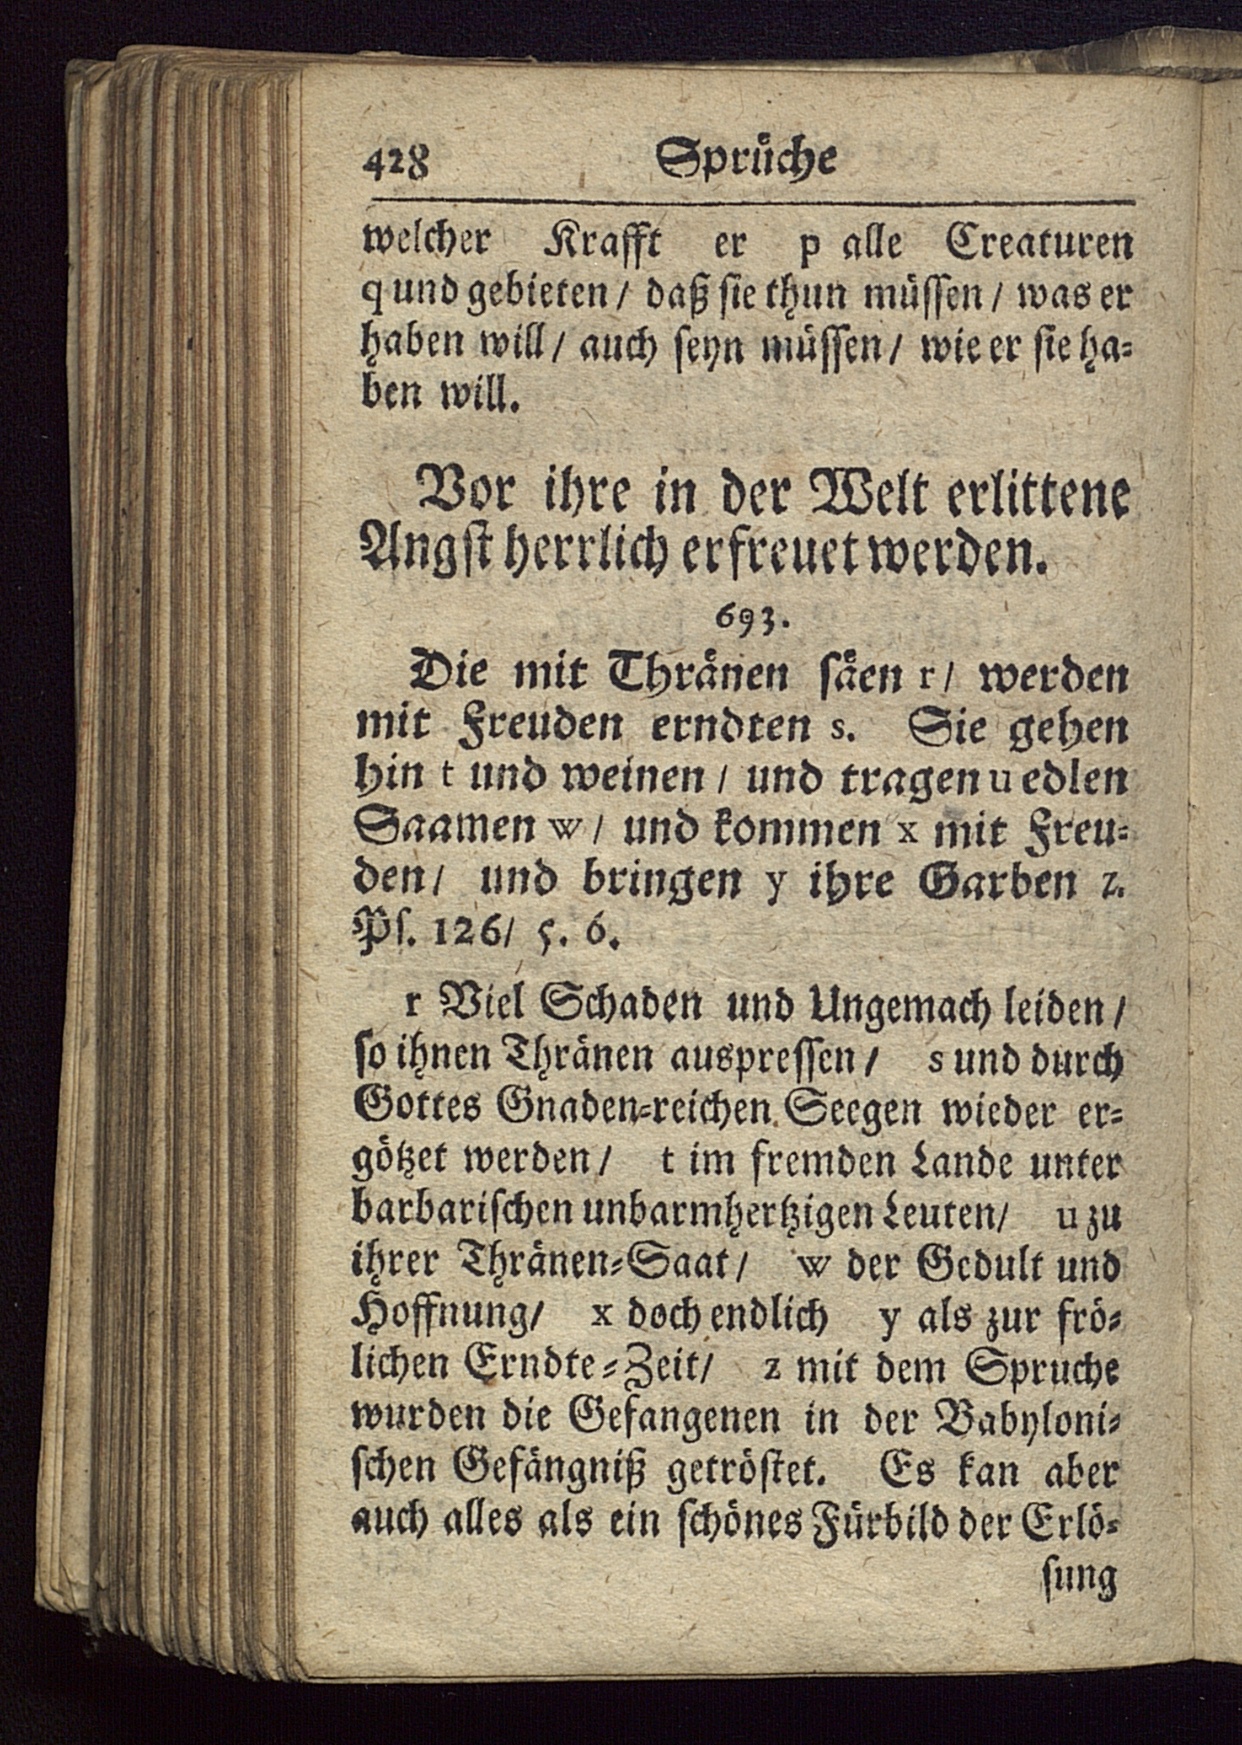 428 Sprüche
welcher Krafft er p alle Creaturen
q und gebieten / daß sie thun müssen / was er
haben will / auch seyn müssen / wie er sie ha-
ben will.
Vor ihre in der Welt erlittene
Angst herrlich erfreuet werden.
693.
Die mit Thränen säen r / werden
mit Freuden erndten s. Sie gehen
hin t und weinen / und tragen u edlen
Saamen w / und kommen x mit Freu-
den / und bringen y ihre Garben z.
Ps. 126 / 5. 6.
r Viel Schaden und Ungemach leiden /
so ihnen Thränen auspressen / s und durch
Gottes Gnaden-reichen Seegen wieder er-
götzet werden / t im fremden Lande unter
barbarischen unbarmhertzigen Leuten / u zu
ihrer Thränen-Saat / w der Gedult und
Hoffnung / x doch endlich y als zur frö-
lichen Erndte-Zeit / z mit dem Spruche
wurden die Gefangenen in der Babyloni-
schen Gefängniß getröstet. Es kan aber
auch alles als ein schönes Fürbild der Erlö-
sung